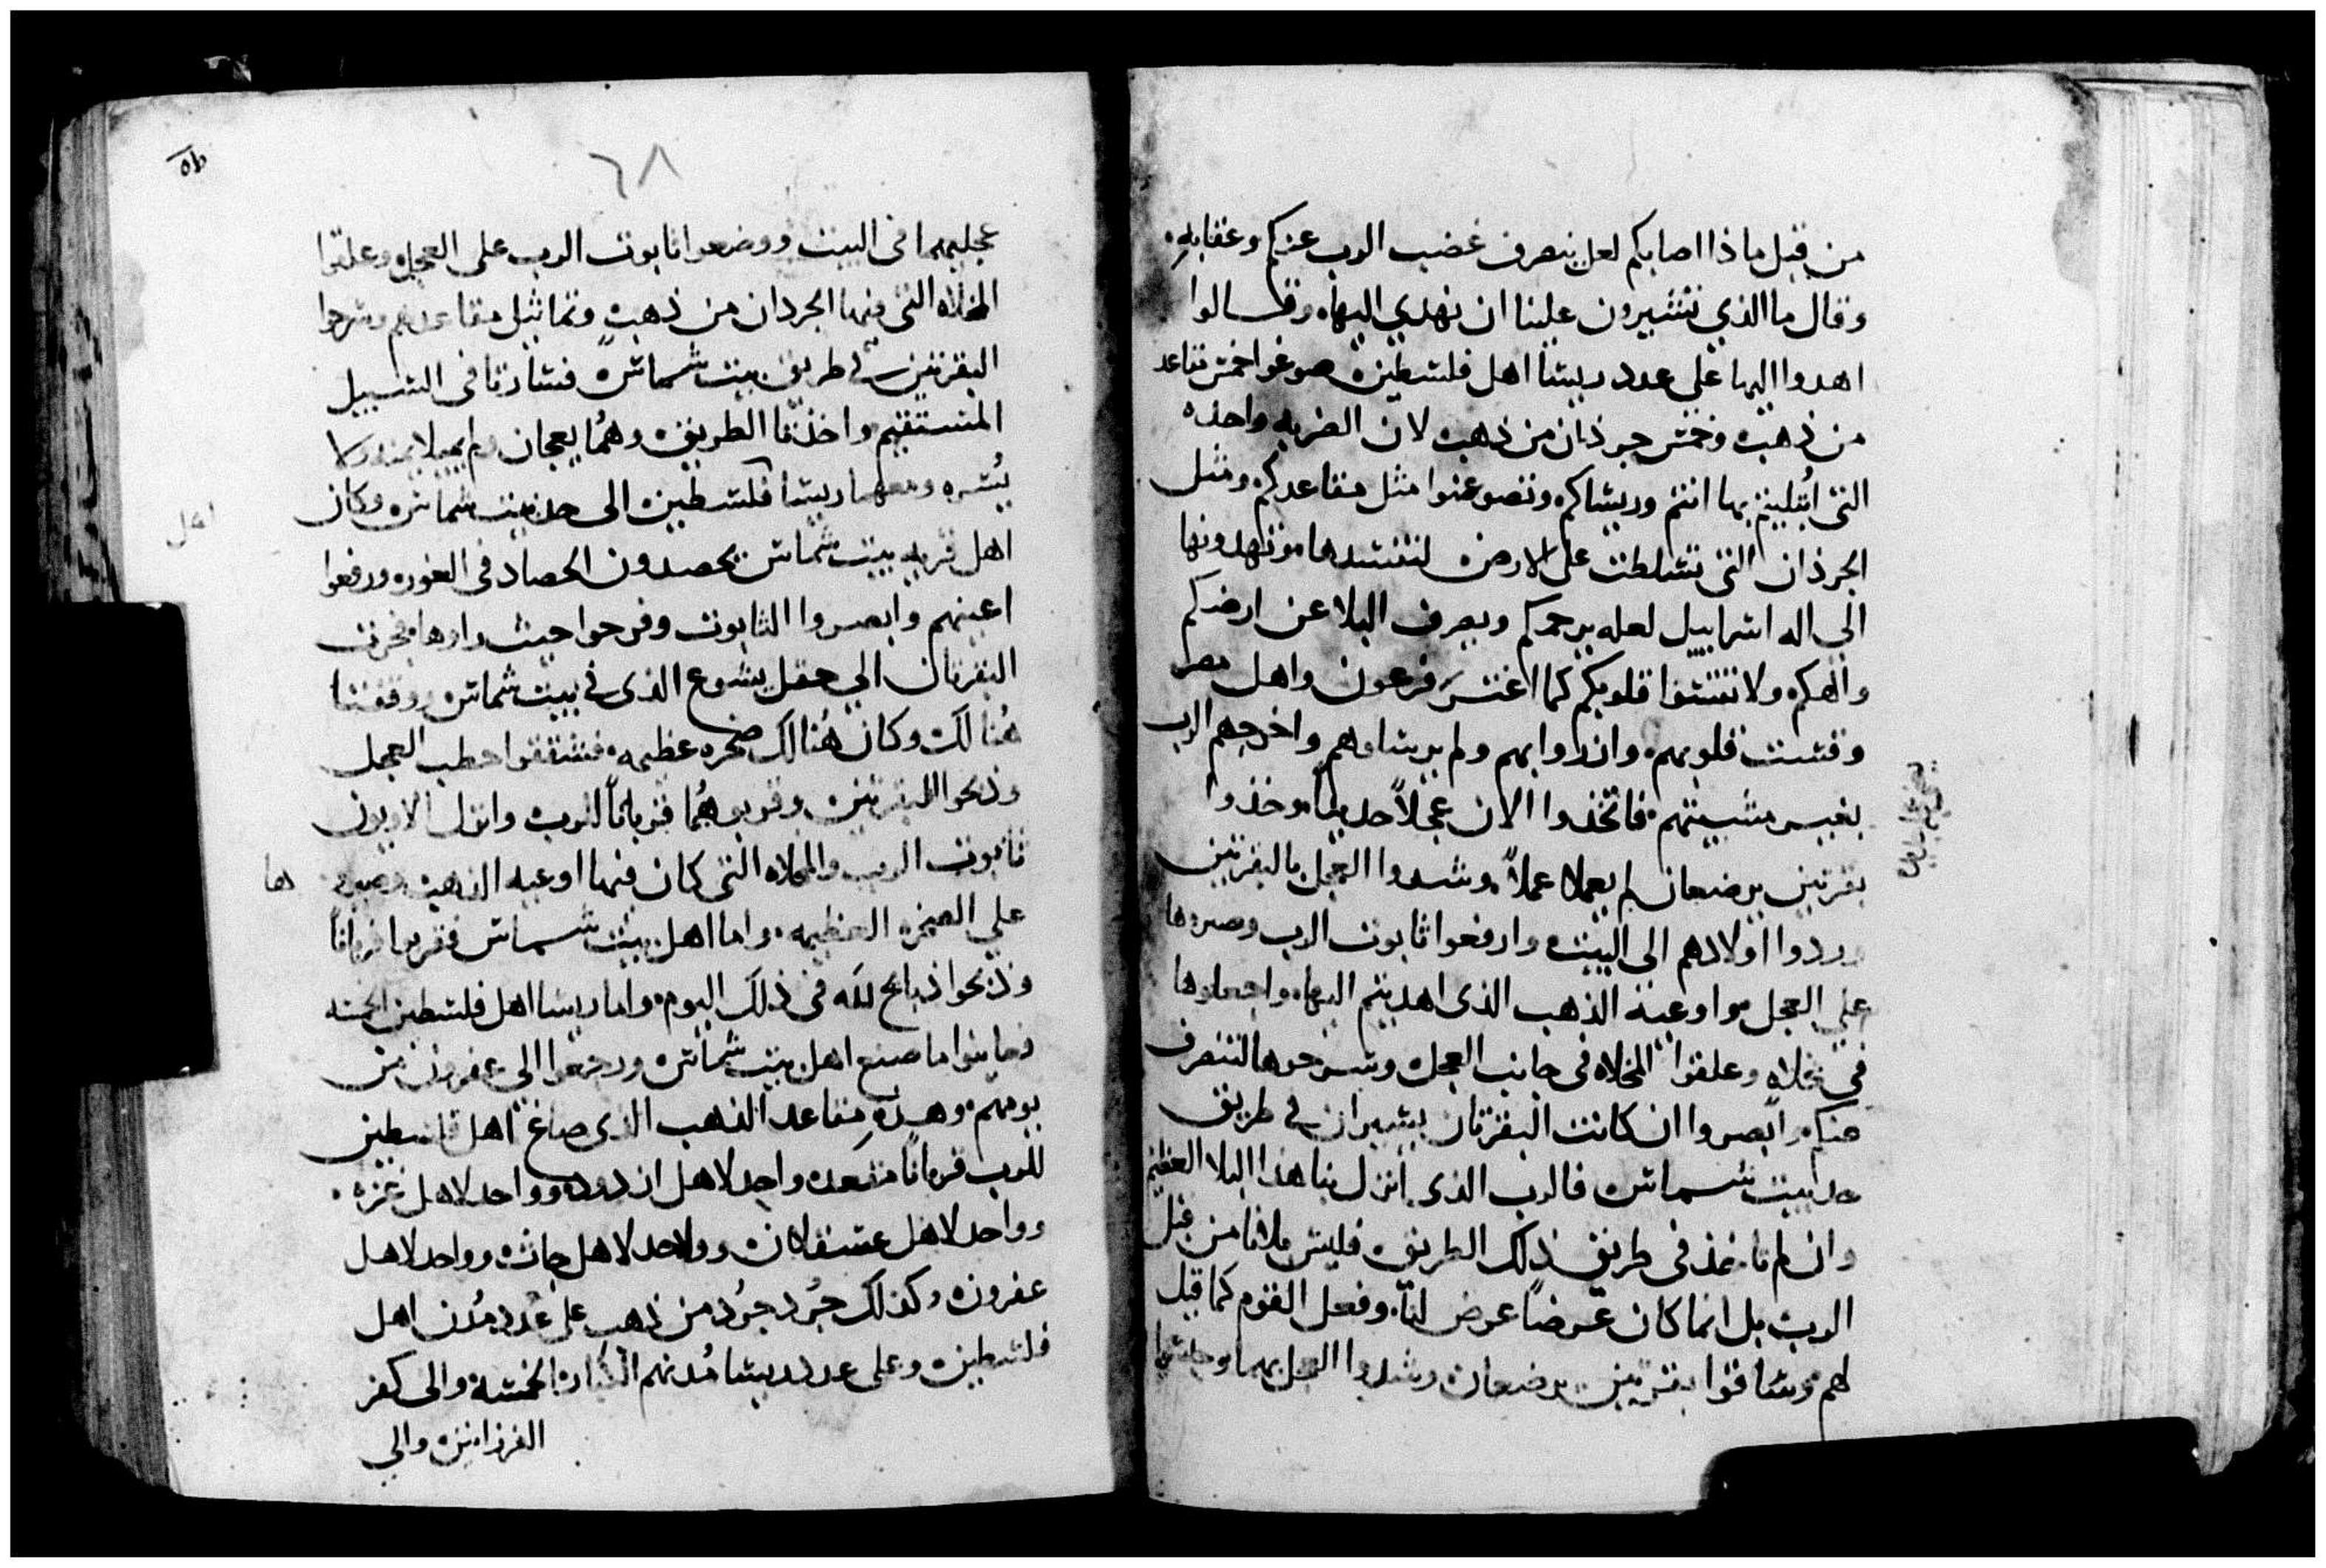 من قبل ماذا اصابكم لعل ينصرف غضب الرب عنكم وعقابه
وقال ما الذي تشيرون علينا ان نهدي اليها وقالوا
اهدوا اليها على عدد ريسا اهل فلسطين صوغوا خمس مقاعد
من ذهب وخمس جرذان من ذهب لان الضربه واحده
التي ابتليتم بها انتم وريساكم وتصوغوا مثل مقاعدكم ومثل
الجرذان التي تسلطت على الارض لتفسدها وتهدونها
الى اله اسراييل لعله يرحمكم ويصرف البلا عن ارضكم
والهكم ولا تقسوا قلوبكم كما اغتر فرعون واهل مصر
وقست قلوبهم وازروا بهم ولم يرسلوهم واخرجهم الرب
بغير مشيتهم فاتخذوا الان عجلاً حديثاً وخذوا
بقرتين يرضعان لم يعملا عملاً وشدوا العجل بالبقرتين
وردوا اولادهم الى البيت وارفعوا تابوت الرب وصيروها
على العجل واوعية الذهب الذى اهديتم اليها واجعلوها
في مخلاه وعلقوا المخلاه فى جانب العجل وسرحوها لتنصرف
عنكم وابصروا ان كانت البقرتان يسيران في طريق
حد بيت شماس فالرب الذى انزل بنا هذا البلا العظيم
وان لم تاخذ في طريق ذلك الطريق فليس بلانا من قبل
الرب بل انما كان عرضاً عرض لنا وفعل القوم كما قيل
لهم وساقوا بقرتين يرضعان وشدوا العجل بهما وحبسوا
٦٨
عجليهما فى البيت ووضعوا تابوت الرب على العجل وعلقوا
المخلاه التي فيها الجرذان من ذهب وتماثيل مقاعدهم وسرحوا
البقرتين في طريق بيت شماس فسارتا فى السبيل
المستقيم واخذتا الطريق وهما يعجان ولم يميلا يمنه ولا
يسره ومعهما ريسا فلسطين الى حد بيت شماس وكان
اهل قريه بيت شماس يحصدون الحصاد فى الغور ورفعوا
اعينهم وابصروا التابوت وفرحوا حيث راوها فجرت
البقرتان الي حقل يشوع الذى في بيت شماس ووقفتا
هُنالك وكان هُنالك صخره عظيمه فشققوا حطب العجل
وذبحوا البقرتين وقربوهُما قرباناً للرب وانزل الاويون
تابوت الرب والمخلاه التي كان فيها اوعيه الذهب وصيرو
ها
علي الصخره العظيمه واما اهل بيت شماس فقربوا قرباناً
وذبحوا ذبايح لله فى ذلك اليوم واما ريسا اهل فلسطين الخمسه
فعاينوا ما صنع اهل بيت شماس ورجعوا الى عفرون من
يومهم وهذه مقاعد الذهب الذى صاغ اهل فلسطين
للرب قرباناً مقعده واحد لاهل ازدود وواحد لاهل غزه
وواحد لاهل عسقلان وواحد لاهل جاث وواحد لاهل
عفرون وكذلك جُرد جُرد من ذهب على عدد مُدن اهل
فلسطين وعلى عدد ريسا مُدنهم الكبار الخمسه والى كفر
الفرزانين والي